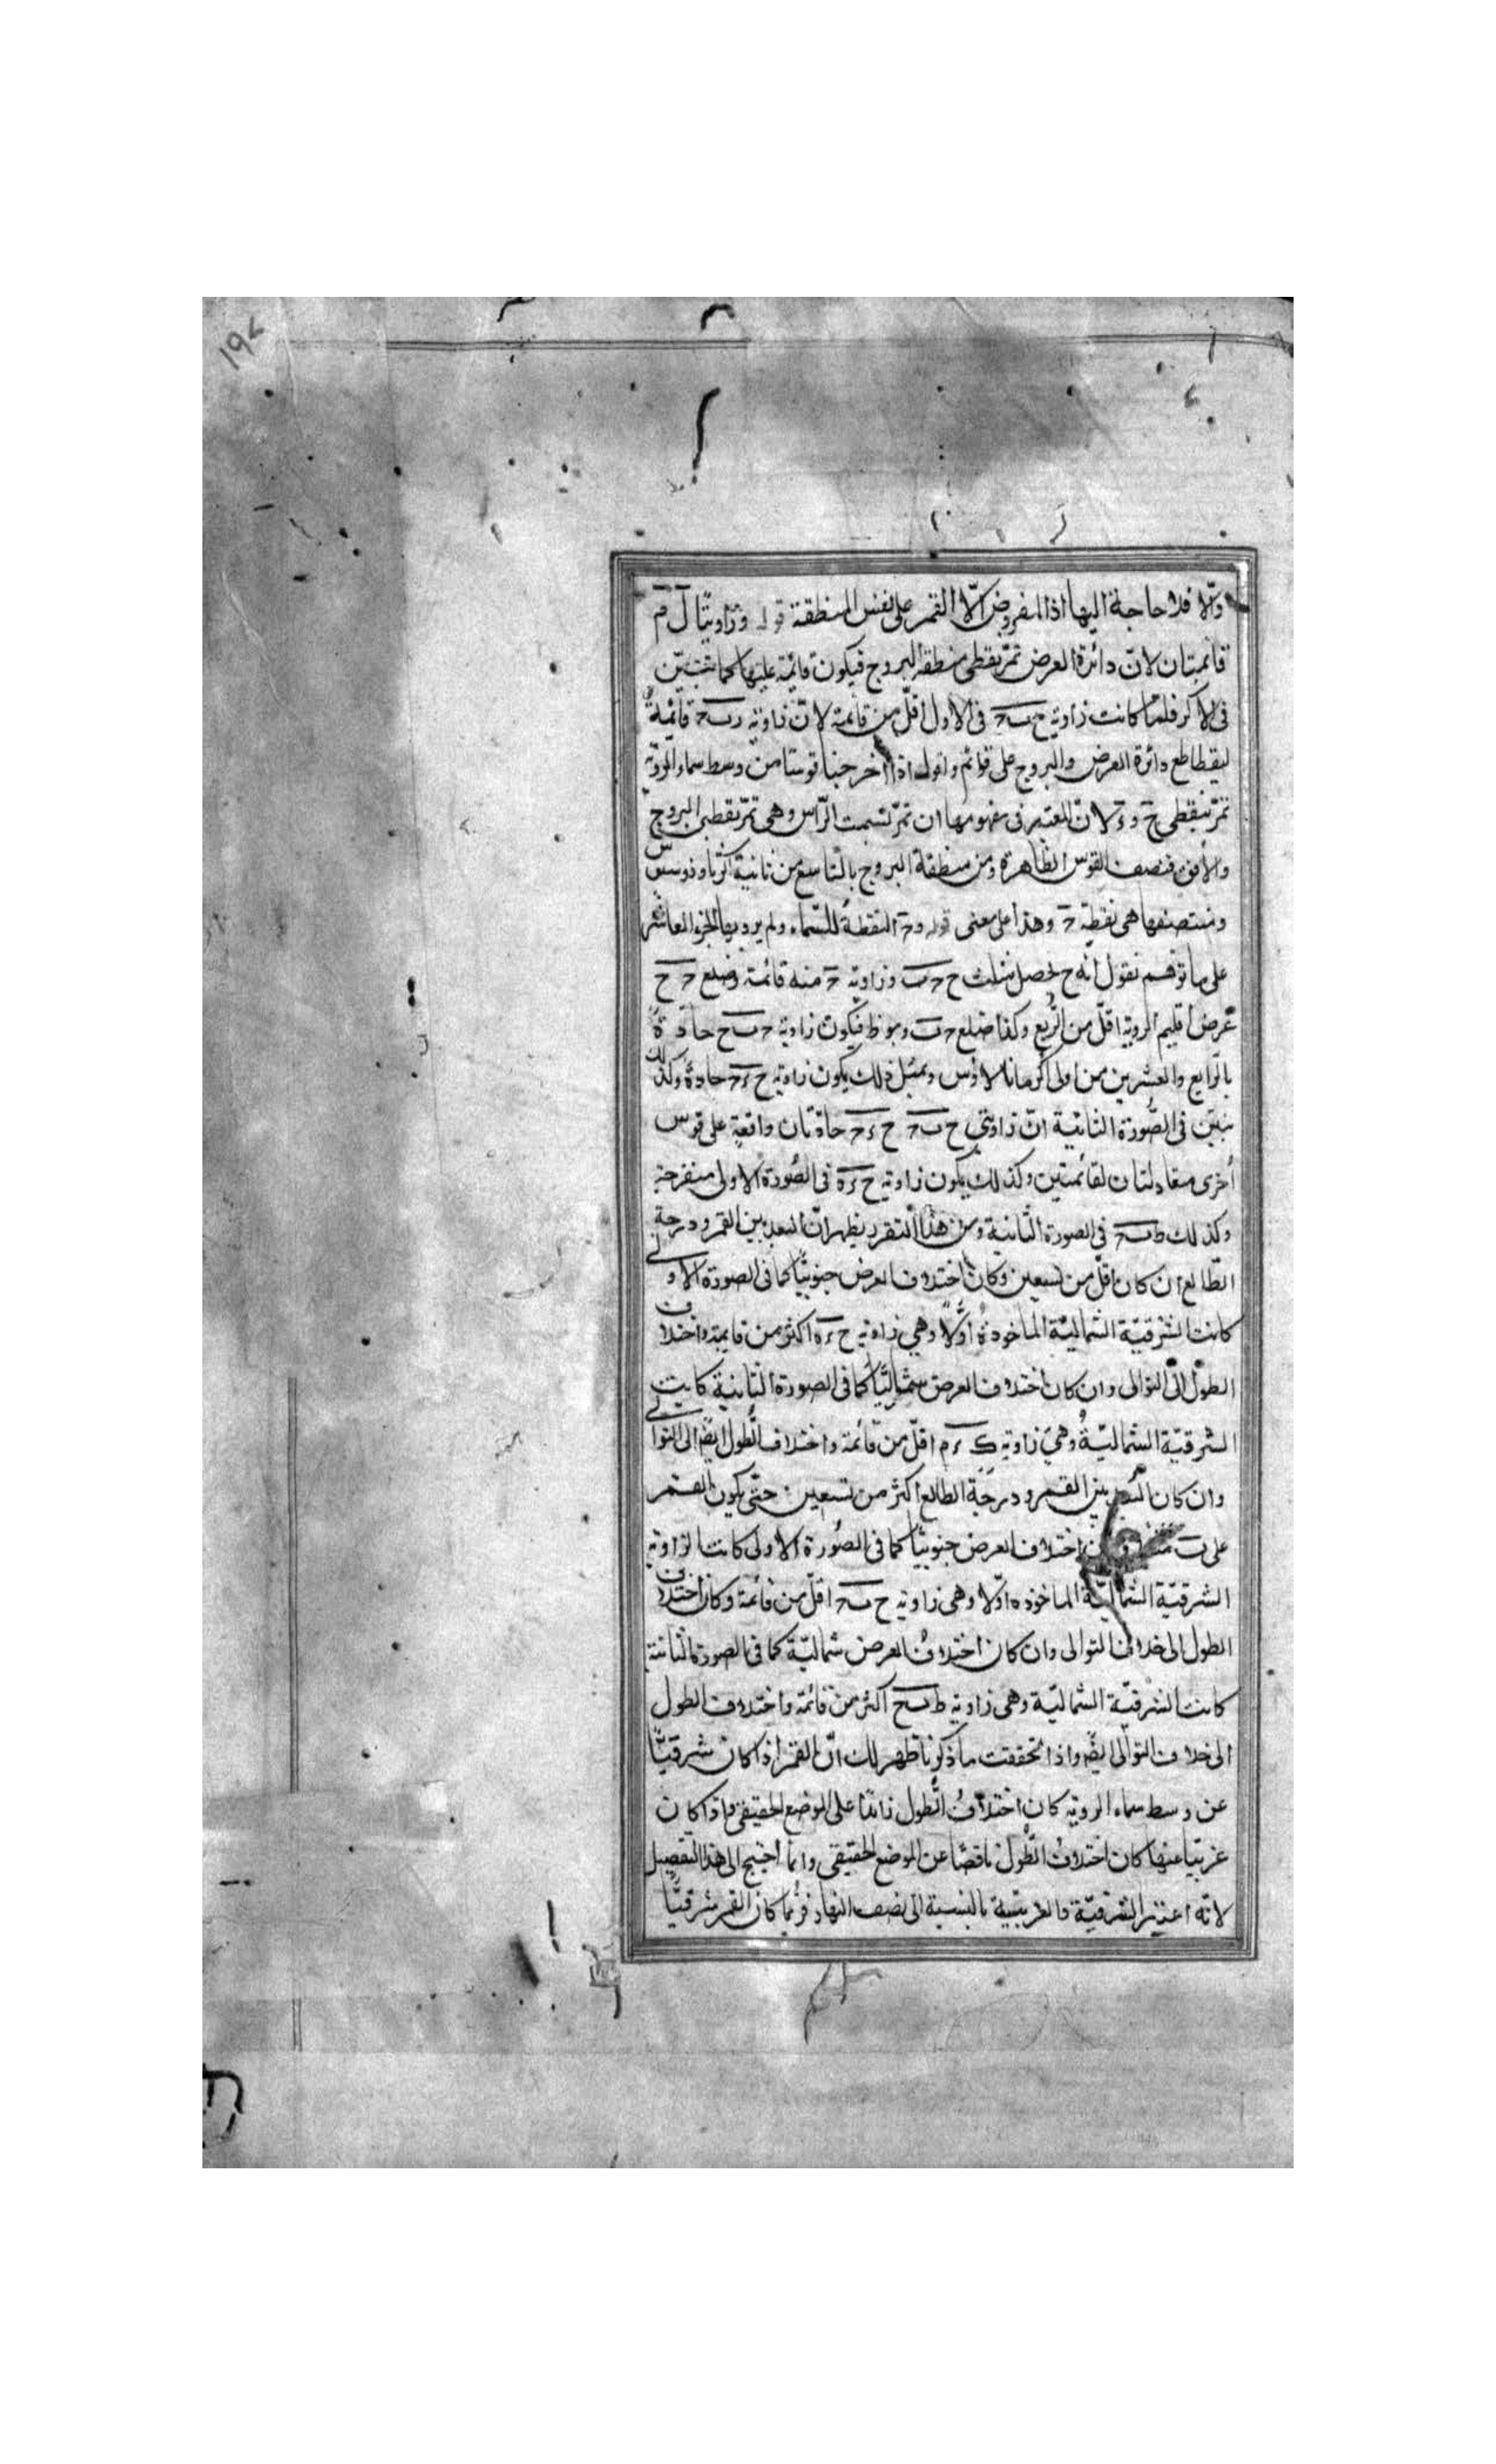 ١٩٤
والّا فلا حاجة اليها اذ المفروض الّا القمر على نفس المنطقة قوله وزاويتا ل م
قائمتان لانّ دائرة العرض تمرّ بقطبى منطقة البروج فيكون قائمة عليها كما تبيّن
فى الاكر فلمّا كانت زاوية ح ب ح فى الاول اقلّ من قائمة لانّ زاوية ر ب ح قائمةٌ
لتقاطع دائرة العرض والبروج على قوائم واقول اذا اخرجنا قوسا من وسط سماء الروية
تمرّ بنقطتى ح و لانّ المعتبر فى مفهومها ان تمرّ بسمت الرّاس وهى تمرّ بقطبى البروج
والافق فنصف القوس الظاهرة من منطقة البروج بالتاسع من ثانية اكر ثاوذوسيوس
ومنتصفها هى نقطة ح وهذا على معنى قوله و ح النقطةُ للسّماء ولم يرد بها الجزء العاشر
على ما توهّم نقول انّه ح يحصل مثلث ح ح ب وزاوية ح منه قائمة وضلع ح ح
عرض اقليم الروية اقلّ من الرُّبع وكذا ضلع ح ب وهو ظ فيكون زاوية ح ب ح حادّةً
بالرّابع والعشرين من اولى اكر مانالاوس وبمثل ذلك يكون زاوية ح ء ح حادةً وكذلك
تبيّن فى الصُّورة الثانية انّ زاويتى ح ب ح ح ء ح حادّتان واقعة على قوس
اُخرى معادلتان لقائمتين وكذلك يكون زاوية ح ء ه فى الصُّورة الاولى منفرجة
وكذلك ط ب ح فى الصورة الثانية ومن هذا التقرير يظهر انّ البعد بين القمر ودرجة
الطّالع ان كان اقلّ من تسعين وكان اختلاف العرض جنوبيًّا كما فى الصورة الاولى
كانت الشرقيّة الشماليّة الماخوذةُ اوّلًا وهى زاوية ح ء ه اكثر من قايمة واختلاف
الطول الى التوالى وان كان اختلاف العرض شماليًّا كما فى الصورة الثانية كانت
الشرقيّة الشماليّةُ وهى زاوية ك ء م اقلّ من قائمة واختلاف الطُّول ايضًا الى التوالى
وان كان البُعد بين القمر ودرجة الطالع اكثر من تسعين حتّى يكون القمر
على ب اختلاف العرض جنوبيًّا كما فى الصُّورة الاولى كانت الزاوية
الشرقيّة الشماليّة الماخوذه اوّلا وهى زاوية ح ب ح اقلّ من قائمة وكان اختلاف
الطول الى خلاف التوالى وان كان اختلافُ العرض شماليّة كما فى الصورة الثانية
كانت الشرقيّة الشماليّة وهى زاوية ط ب ح اكثر من قائمة واختلاف الطول
الى خلاف التوالى ايضًا واذا تحققت ما ذكرنا ظهر لك انّ القمر اذا كان شرقيًّا
عن وسط سماء الروية كان اختلافُ الطُّول زائدًا على الموضع الحقيقى واذا كان
غربيًّا عنها كان اختلاف الطُّول ناقصًا عن الموضع الحقيقى وانّما احتيج الى هذا التفصيل
لانّه اعتبر الشرقيّة والغربيّة بالنسبة الى نصف النهار فربّما كان القمر شرقيًّا